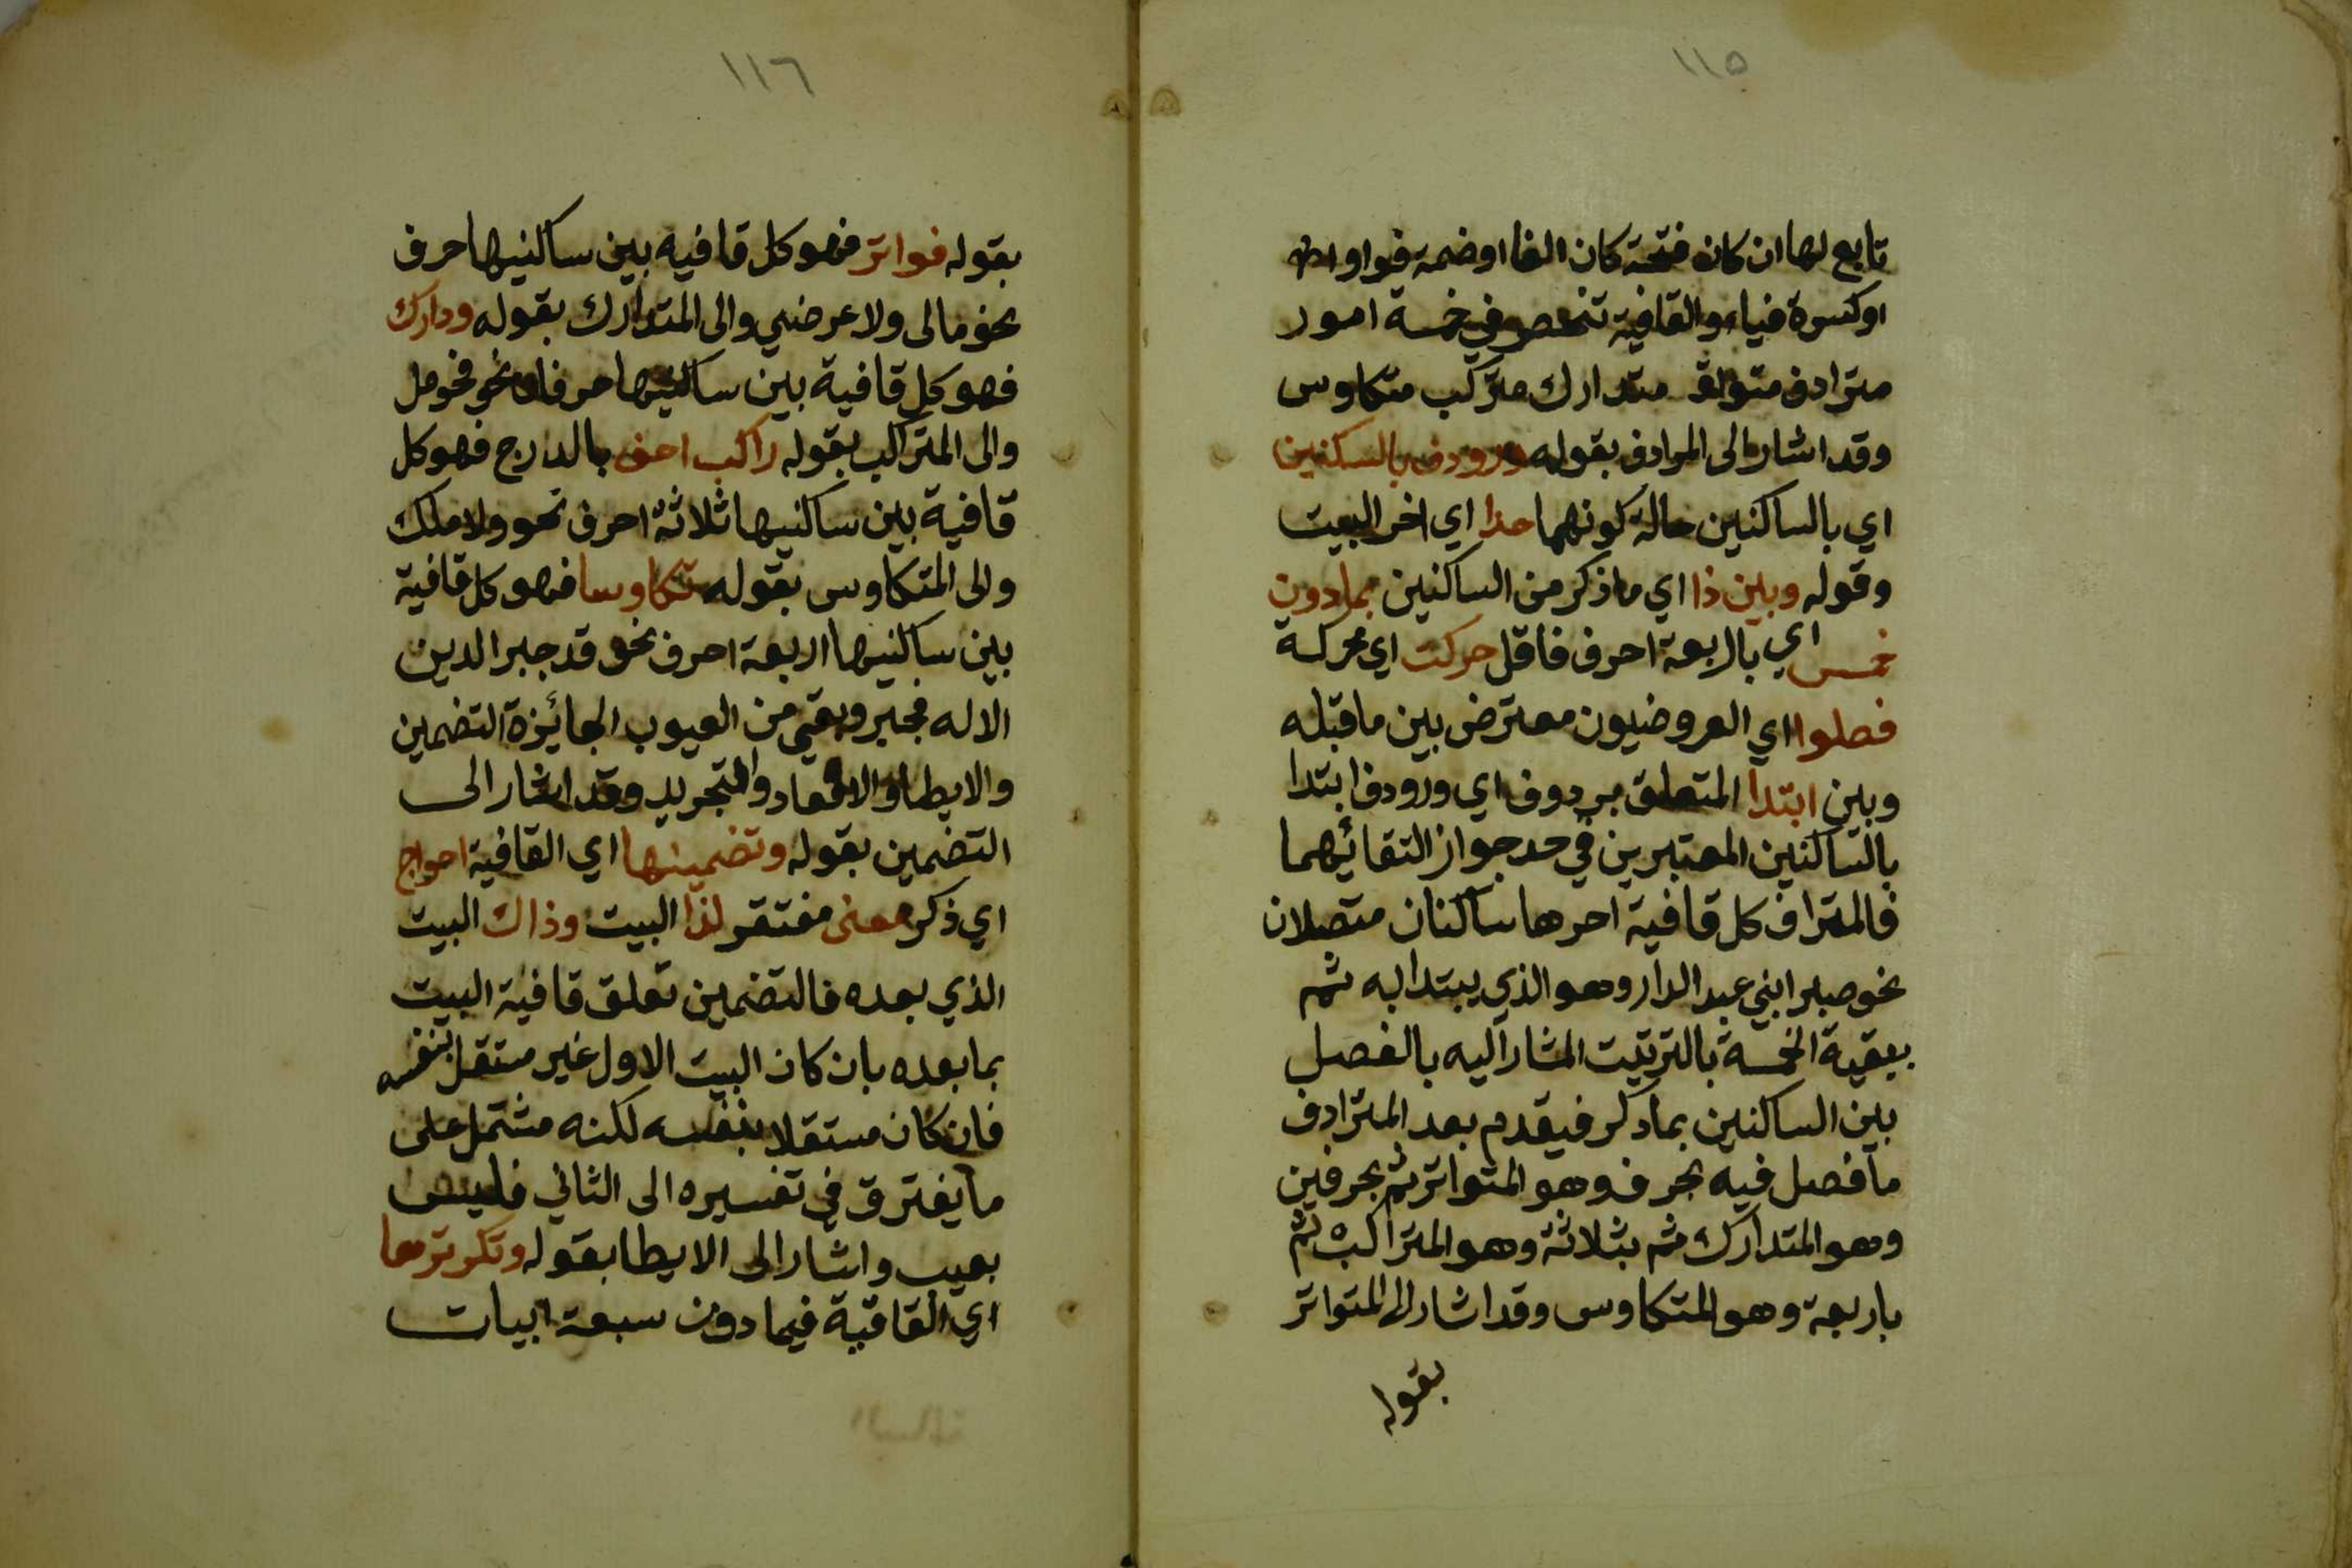 ١١٥
تابع لها ان كان فتحة كان الفا او ضمة فواو او
اوكسرة فياء والقافية تنحصر في خمسة امور
مترادف متواتر متدارك متركب متكاوس
وقد اشار الى المرادف بقوله ورودف بالسكنين
اي بالساكنين حالة كونهما حدا اي اخر البيت
وقوله وبين ذا اي ما ذكر من الساكنين بما دون
خمس اي باربعة احرف فاقل حركت اي محركة
فصلوا اي العروضيون معترض بين ما قبله
وبين ابتدا المتعلق بردوف اي ورودف ابتدا
بالساكنين المعتبرين في حد جواز التقائهما
فالمتراف كل قافية اخرها ساكنان متصلان
نحو صبرا بني عبد الدار وهو الذي يبتدا به ثم
ببقية الخمسة بالترتيت المشار اليه بالفصل
بين الساكنين بما دكر فيقدم بعد المترادف
ما فصل فيه بحرف وهو المتواتر ثم بحرفين
وهو المتدارك ثم بثلاثة وهو المتراكب ثم
باربعة وهو المتكاوس وقد اشار الى المتواتر
بقوله
١١٦
بقوله فواتر فهو كل قافية بين ساكنيها حرف
نحو مالى ولا عرضي والى المتدارك بقوله ودارك
فهو كل قافية بين ساكنيها حرفان نحو فحومل
والى المتراكب بقوله راكب احف بالدارج فهو كل
قافية بين ساكنيها ثلاثة احرف نحو ولا ملك
والى المتكاوس بقوله تكاوسا فهو كل قافية
بين ساكنيها اربعة احرف نحو قد جبر الدين
الاله فجبر وبقي من العيوب الجائزة التضمين
والايطا والاقعاد والتجريد وقد اشار الى
التضمين بقوله وتضمينها اي القافية احواج
اي ذكر معنى مفتقر لذا البيت وذاك البيت
الذي بعده فالتضمين تعلق قافية البيت
بما بعده بان كان البيت الاول غير مستقل بنفسه
فان كان مستقلا بنفسه لكنه مشتمل على
ما يفترق في تفسيره الى الثاني فليس
بعيب واشار الى الايطا بقوله وتكريرها
اي القافية فيما دون سبعة ابيات